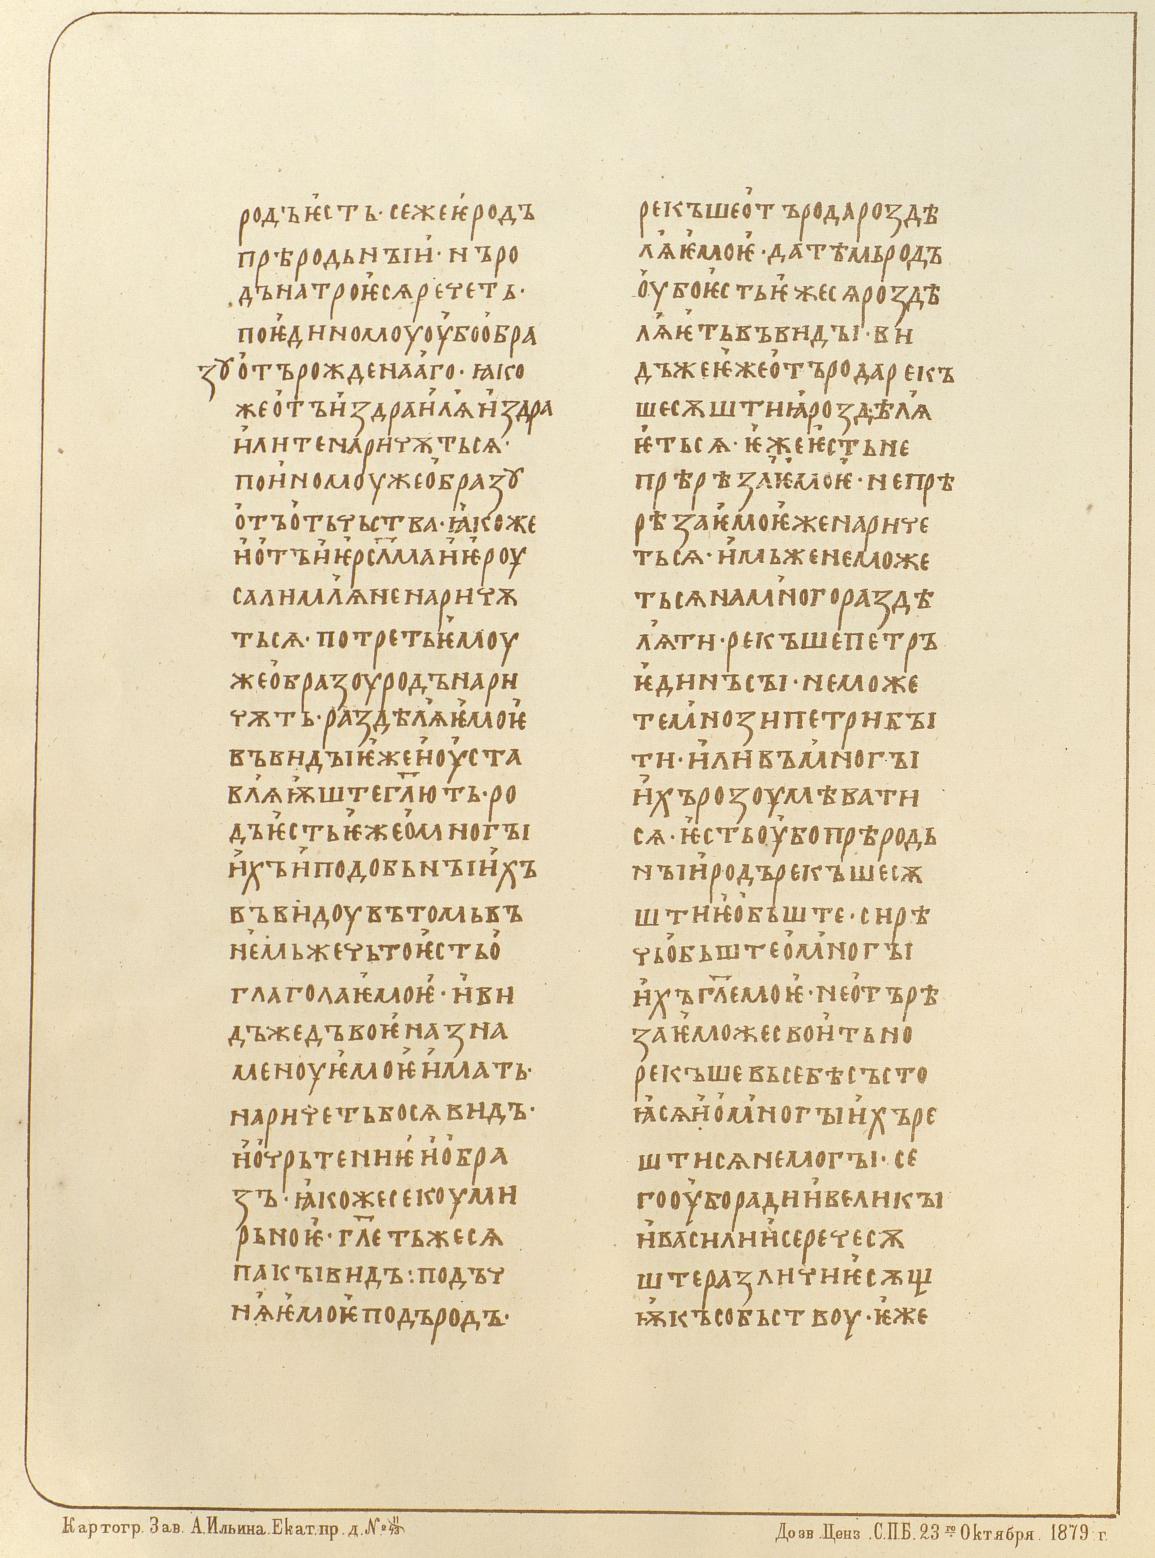 родъѥсть· сежеѥродъ
прѣродьнъіи· нъро
дънатроѥсѧречеть·
поѥдиномоуоубообра
зꙋотърожденааго· ꙗко
жеотъиздраилѧиздра
илитенаричѫтьсѧ·
поиномоужеобразꙋ
отъотьчьства· ꙗкоже
иотъиѥрслманиѥроу
салимлѧненаричѫ
тьсѧ· потретьѥмоу
жеобразоуродънари
чѫть· раздѣлѧѥмоѥ
въвидъіѥжеиоуста
влѧѭштеглють· ро
дъѥстьѥжеомногъі
ихъиподобьнъіихъ
въвидоувътомьвъ
немьжечьтоѥстьо
глаголаѥмоѥ· иви
дъжедъвоѥназна
меноуѥмоѥимать·
наричетьбосѧвидъ·
иочрьтениѥиобра
зъ· ꙗкожесекоуми
рьноѥ· глетьжесѧ
пакъівидъ:· подъч
нѧѥмоѥподъродъ·
рекъшеотъродарозⷣѣ
лѧѥмоѥ· датѣмьродъ
оубоѥстьѥжесѧроздѣ
лѧѥтьвъвидъі· ви
дъжеѥжеотъродарекъ
шесѫштиꙗроздѣлѧ
ѥтьсѧ· ѥжеѥстьне
прѣрѣзаѥмоѥ· непрѣ
рѣзаѥмоѥженариче
тьсѧ· имьженеможе
тьсѧнамногораздѣ
лѧти· рекъшепетръ
ѥдинъсъі· неможе
темнозипетрибъі
ти· иливъмногъі
ихърозоумѣвати
сѧ· ѥстьоубопрѣродь
нъіиродърекъшесѫ
штиѥобьште· сирѣ
чьобьштеомногъі
ихъглемоѥ· неотърѣ
заѥможесвоитьно
рекъшевьсебѣсъсто
ꙗсѧиомногъіихъре
штисѧнемогъі· се
гооуборадиивеликъі
ивасилиисеречесѫ
штеразличиѥсѫщ
ѭкъсобьствоу· ѥже
Картогр. Зав. А.Ильина. Екат.пр. д. №
Дозв. Ценз. С.П.Б. 23 го Октября. 1879 г.